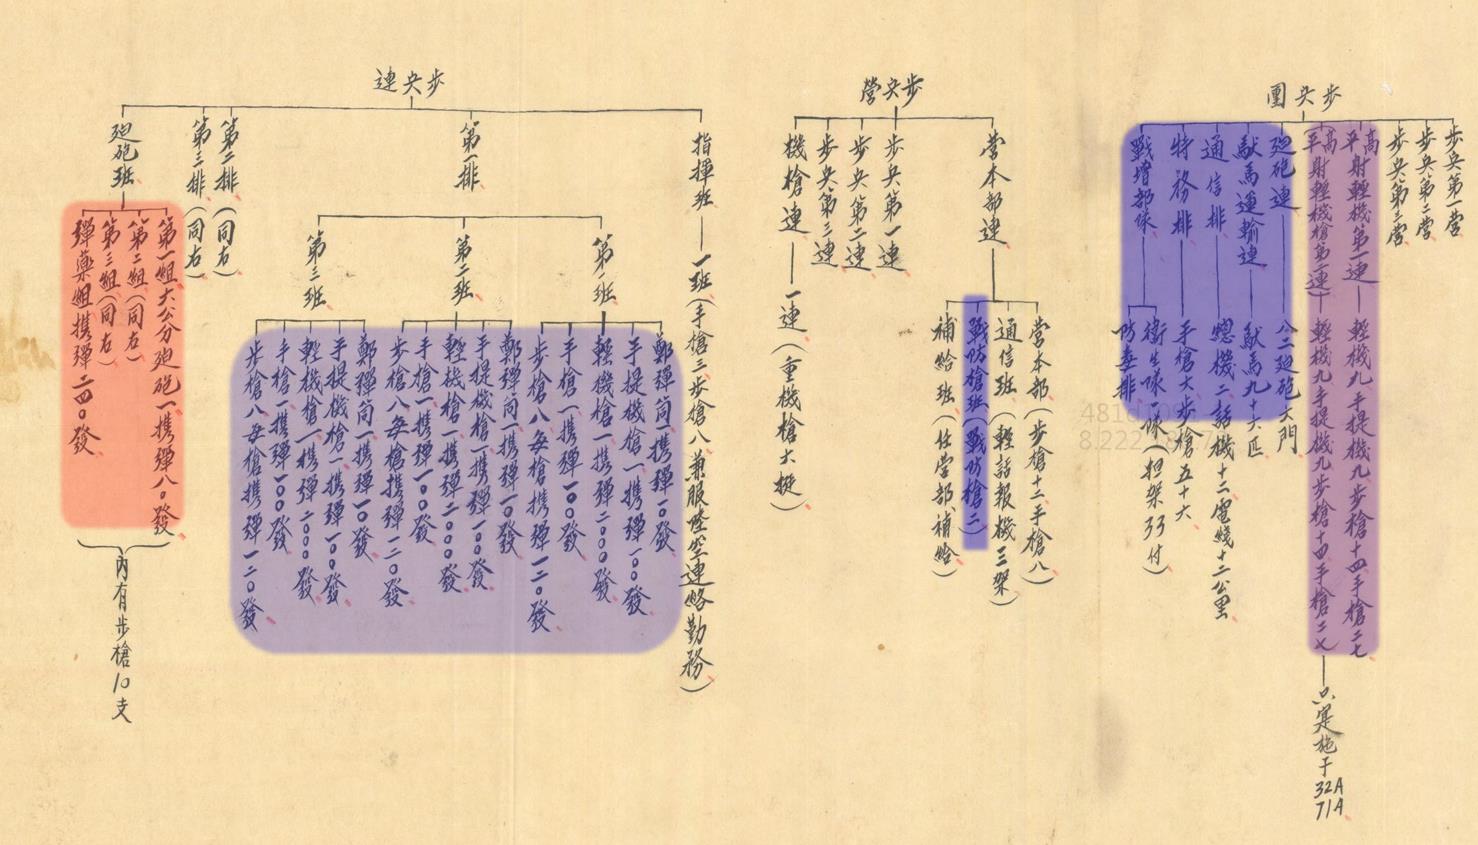 步兵團
步兵第一營
步兵第二營
步兵第三營
高平射輕機第一連 輕機九手提機九步槍十四手槍二七
高平射輕機槍第二連) 輕機九手提機九步槍十四手槍二七
只定施于
32A
71A
廹砲連 八二廹砲六門
馱馬運輸連 馱馬九十六匹
通信排 總機二話機十二電綫十二公里
特務排 手槍六步槍五十六
戰增部隊
衛生隊一隊(担架 付)
防毒排
步兵營
營本部連
營本部(步槍十二手槍八)
通信班(輕話報機三架)
戰防槍班(戰防槍二)
補給班(任營部補給)
步兵第一連
步兵第二連
步兵第三連
機槍連 一連(重機槍六挺)
步兵連
指揮班 一班(手槍三步槍八兼服陸空連絡勤務)
第一排
第一班
擲彈筒一携彈一0發
手提機槍一携彈一00發
輕機槍一携彈二000發
手槍一携彈一00發
步槍八每槍携彈一二0發
第二班
擲彈筒一携彈一0發
手提機槍一携彈一00發
輕機槍一携彈二000發
手槍一携彈一00發
步槍八每槍携彈一二0發
第三班
擲彈筒一携彈一0發
手提機槍一携彈一00發
輕機槍一携彈二000發
手槍一携彈一00發
步槍八每槍携彈一二0發
第二排(同右)
第三排(同右)
廹砲班
第一組六公分廹砲一携彈八0發
第二組(同右)
第三組(同右)
彈藥組携彈二四0發
內有步槍10支